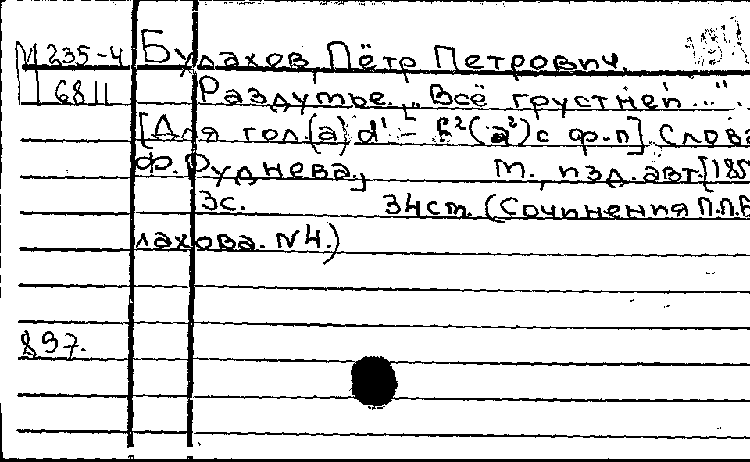 М 235-4 Булахов, Пётр Петрович.
П 6811 Раздумье. „Всё грустней..."
[Для гол.(а) d¹ – (а²) с ф-п] Слова
Ф. Руднева. М., изд. авт. [185
3с. 34 см. (Сочинения П.П.Б
лахова. N4.)
897.